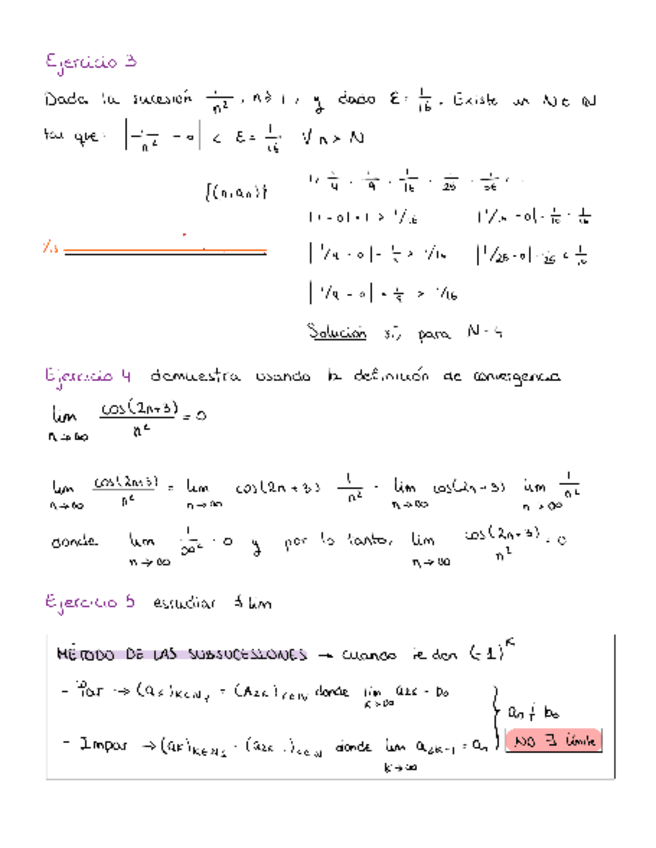 Ejercicio 3
Dada la sucesión 1/n², n ≥ 1, y dado ε = 1/16. Existe un N ∈ ℕ
tal que: |1/n² - 0| < ε = 1/16 ∀ n > N
{(n, an)}
1, 1/4, 1/9, 1/16, 1/25, 1/36, ...
|1 - 0| = 1 > 1/16 |1/16 - 0| = 1/16 = 1/16
|1/4 - 0| = 1/4 > 1/16 |1/25 - 0| = 1/25 < 1/16
|1/9 - 0| = 1/9 > 1/16
Solución sí, para N = 4
Ejercicio 4 demuestra usando la definición de convergencia
lim n→∞ cos(2n+3)/n² = 0
lim n→∞ cos(2n+3)/n² = lim n→∞ cos(2n+3) · 1/n² = lim n→∞ cos(2n+3) lim n→∞ 1/n²
donde lim n→∞ 1/∞² = 0 y por lo tanto, lim n→∞ cos(2n+3)/n² = 0
Ejercicio 5 estudiar lim
MÉTODO DE LAS SUBSUCESIONES → cuando te den (-1)^K
- Par → (aK)K∈N₁ = (a2K)K∈N donde lim K→∞ a2K = b0
a1 ≠ b0
- Impar → (aK)K∈N1 = (a2K-1)K∈N donde lim K→∞ a2K-1 = a1
NO ∃ límite